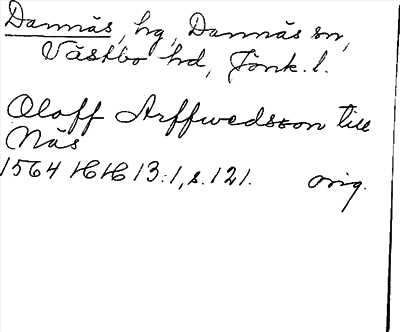 Dannäs, hg, Dannäs sn,
Västbo hd, Jönk. l.
Oloff Arffwedsson till
Näs
1564 HH 13:1, s. 121. orig.